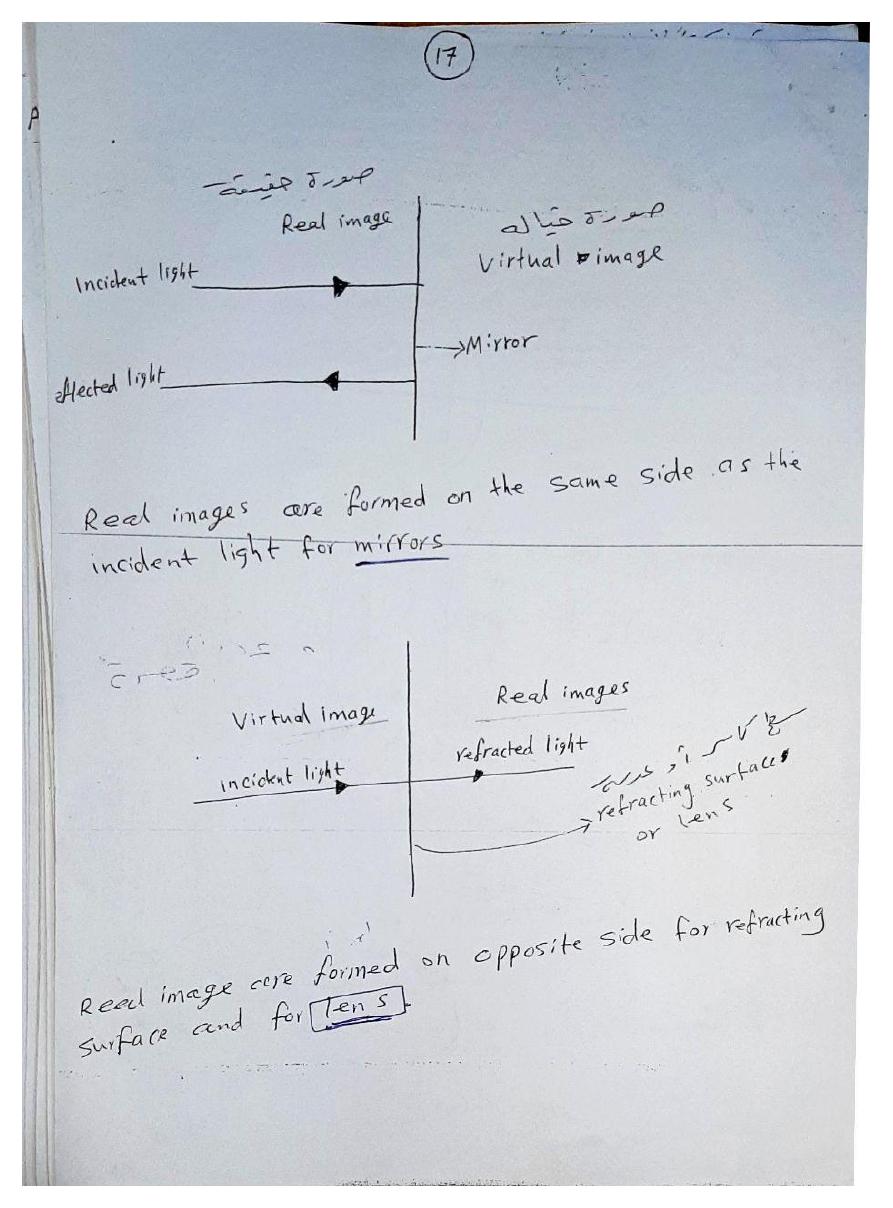 17
صورة حقيقة
Real image
صورة خياله
Virtual image
Incident light
Mirror
eflected light
Real images are formed on the same side as the
incident light for mirrors
Virtual image
Real images
incident light
refracted light
سطح كاسر أو عدسة
refracting surfaces
or lens
Real image are formed on opposite side for refracting
surface and for lens